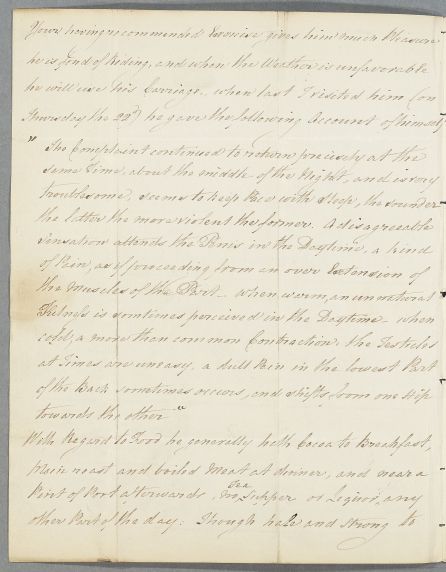 Your having recommended Exercise gives him much Pleasure
he is fond of Riding, and when the Weather is unfavorable
he will use his Carriage. when last I visited him (on
Thursday the 22d) he gave the following Account of himself
" The Complaint continues to return precisely at the
same Time, about the middle of the Night, and is very
troublesome, seems to keep Pace with Sleep, the sounder
the latter the more violent the former. A disagreeable
Sensation attends the Penis in the Daytime, a kind
of Pain, as if proceeding from an over Extension of
the Muscles of the Part - when warm, an unnatural
Fulness is sometimes perceived in the Daytime - when
cold, a more than common Contraction. The Testicles
at Times are uneasy, a dull Pain in the lowest Part
of the Back sometimes occurs, and shifts from one Hip
towards the other "
With Regard to Food he generally hath Cocoa to Breakfast,
Plain roast and boiled Meat at dinner, and near a
Pint of Port afterwards. Tea
no Supper or Liquor any
other Part of the day. Though hale and strong to